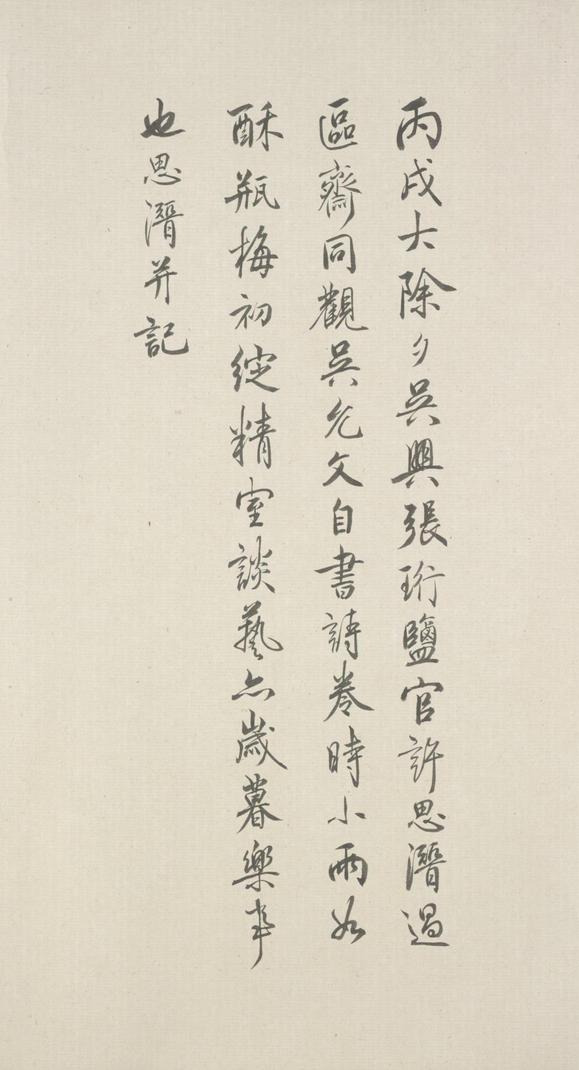 丙戌大除夕吳興張珩鹽官許思潛過
區齋同觀吳允文自書詩卷時小雨如
酥瓶梅初綻精室談藝亦歲暮樂事
也思潛并記